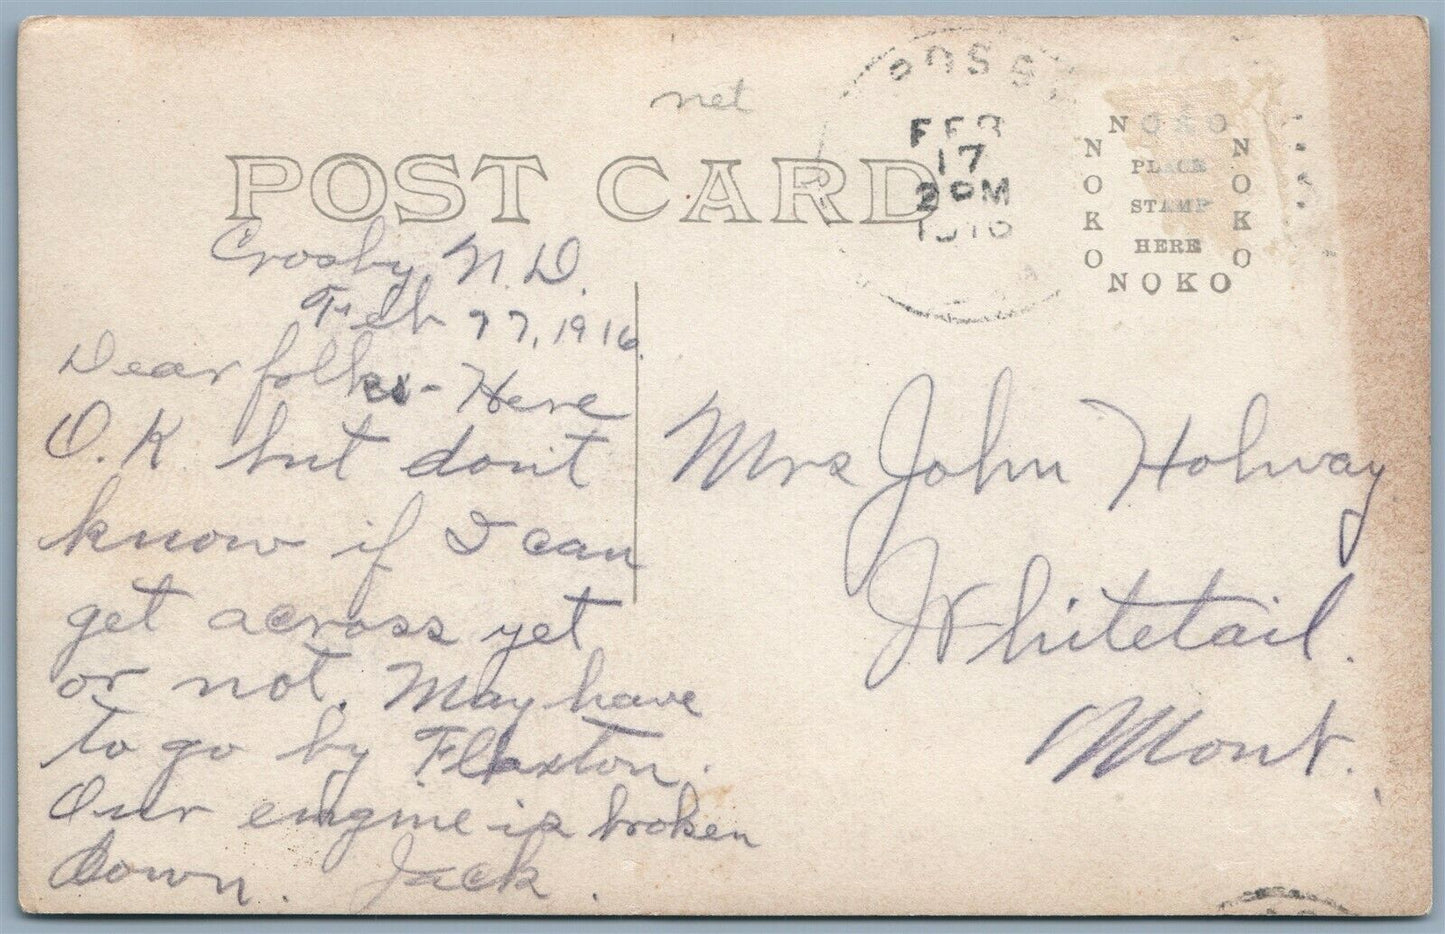 net
POST CARD
FEB
17
2 PM
1916
NOKO
NOKO
PLACE
STAMP
HERE
NOKO
NOKO
Crosby, N.D.
Feb 17, 1916.
Dear folks - Here
O.K. but don't
know if I can
get across yet
or not. May have
to go by Flaxton.
Our engine is broken
down. Jack.
Mrs John Holway
Whitetail.
Mont.